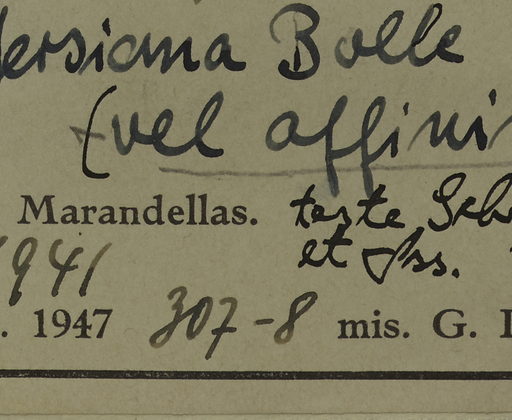 Versiana Bolle
(vel affini
Marandellas. teste Sch
et
1941
. 1947 307-8 mis. G.